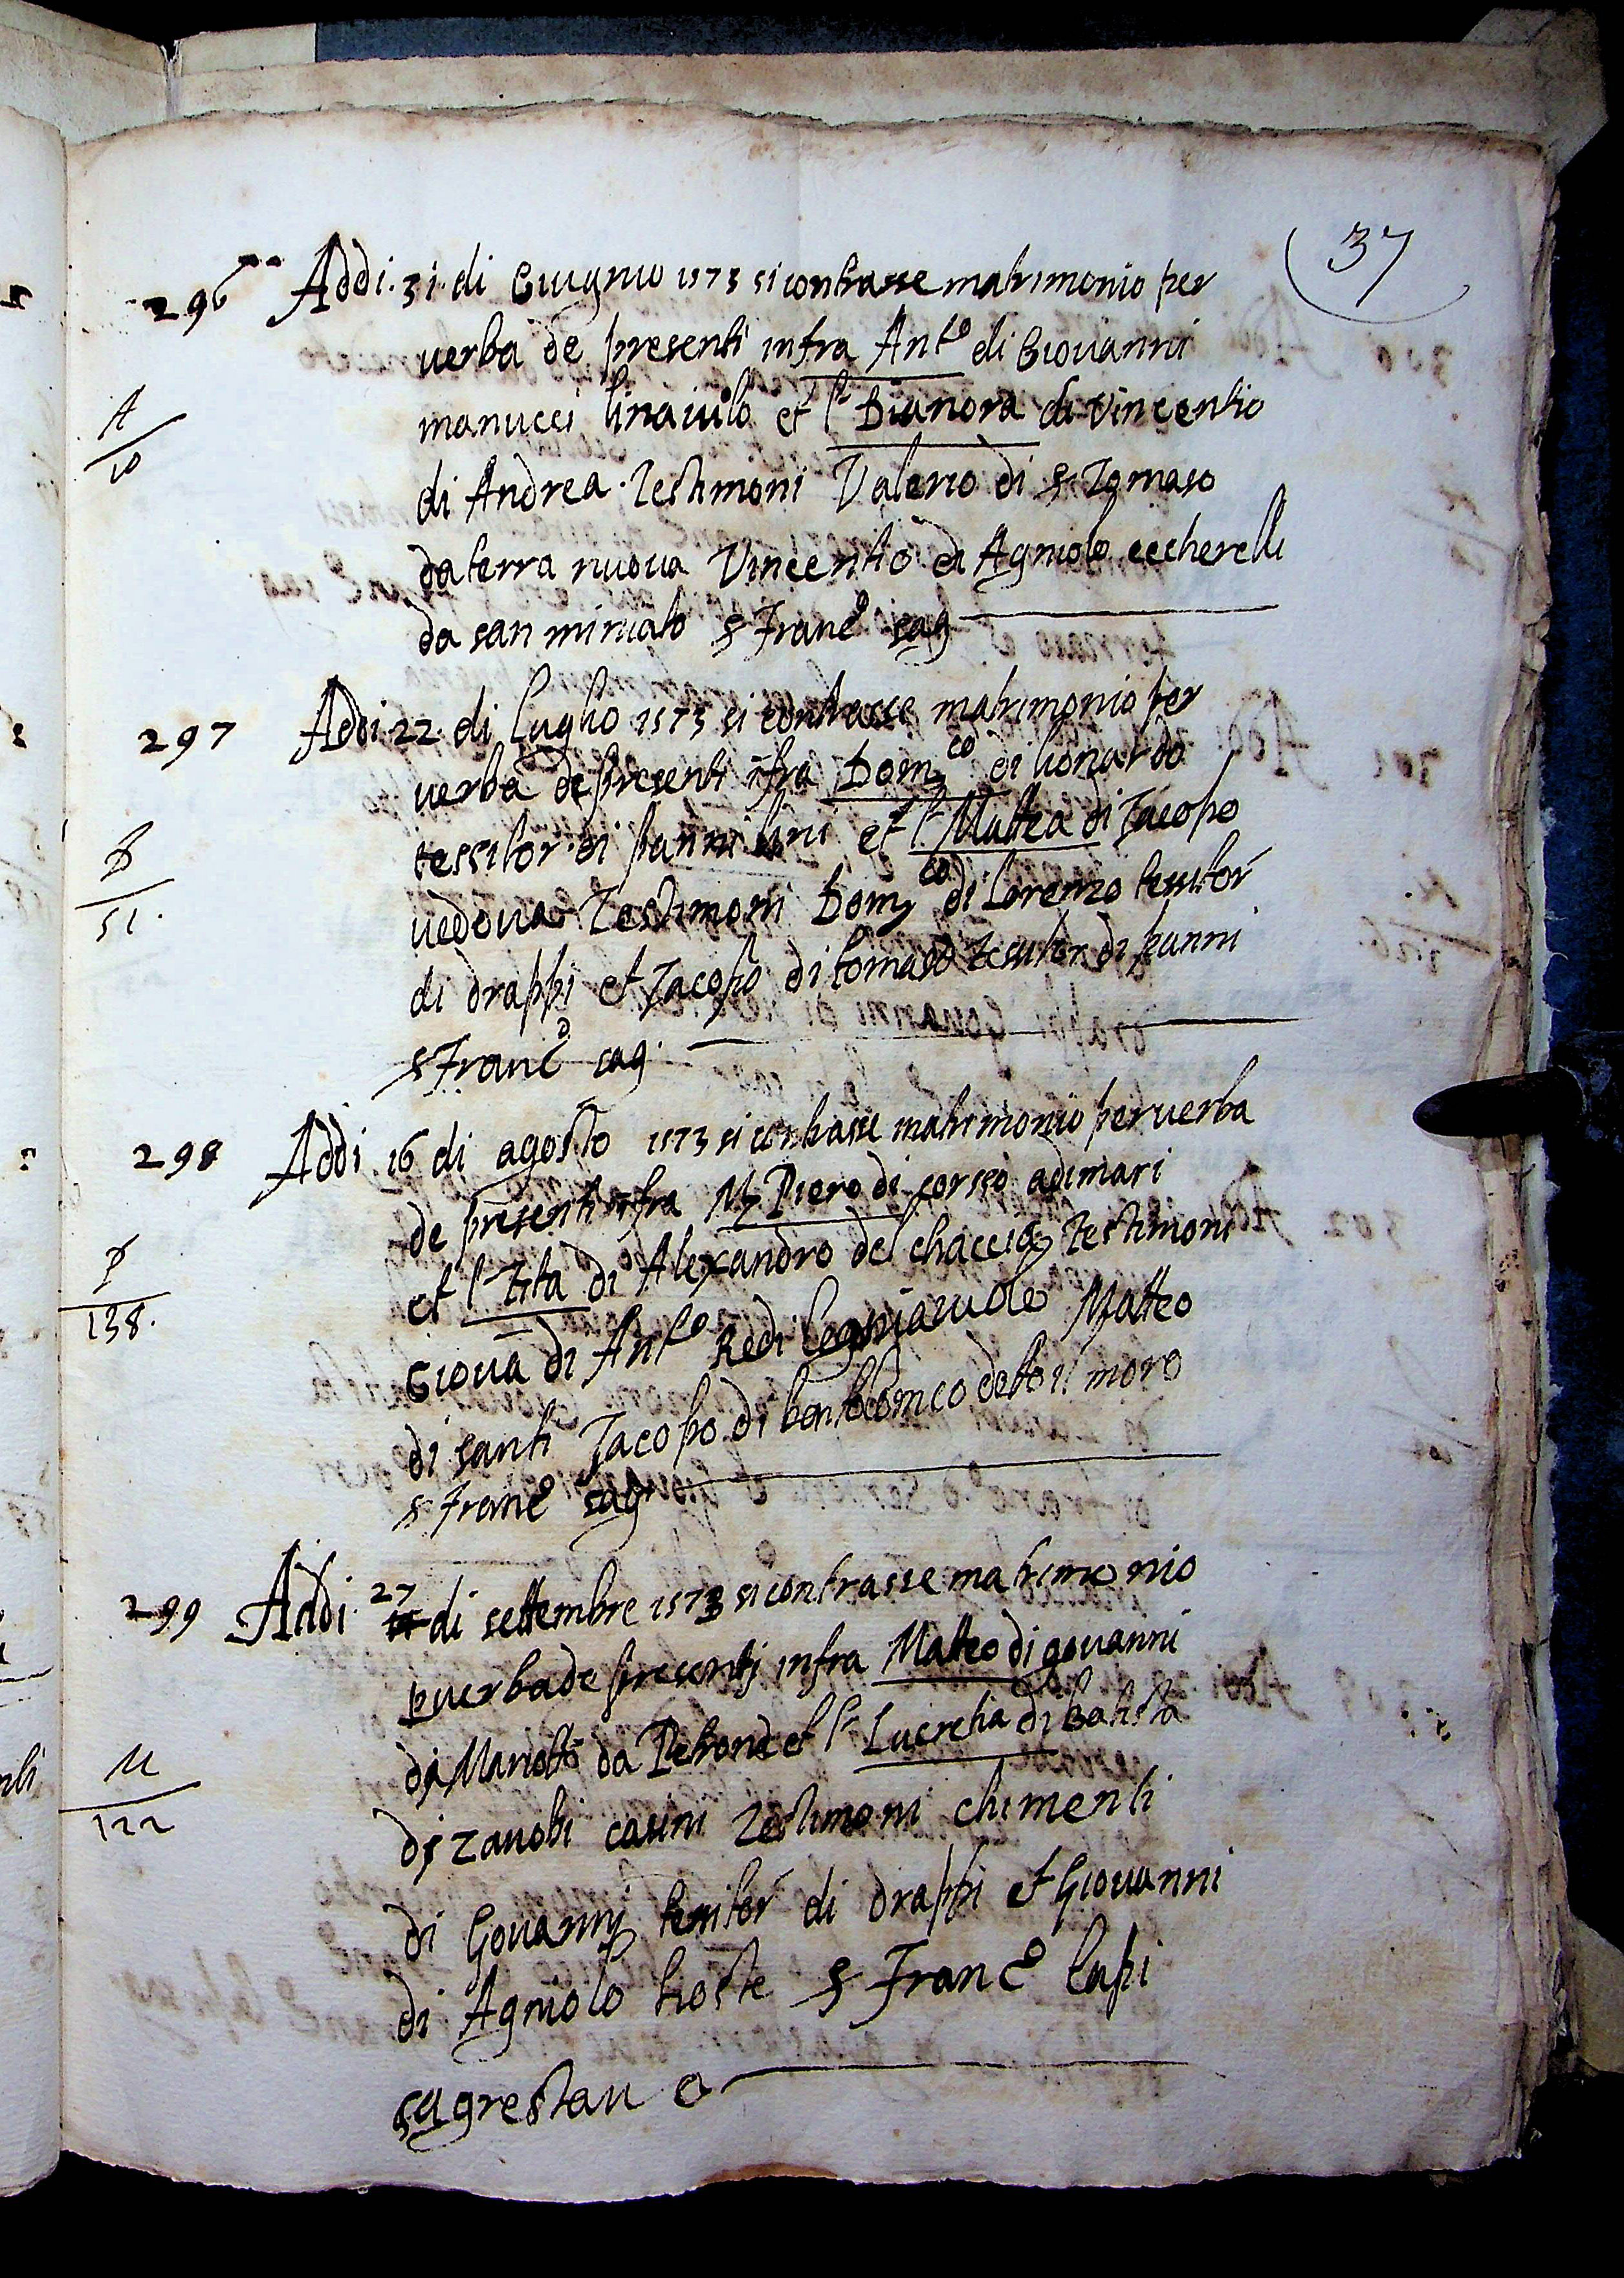 37
296 Addi. 31. di Giugnio 1573 si contrasse matrimonio per
verba de presenti infra Ant.o di Giovanni
manucci linaiuolo et l.a Dianora di Vincentio
A
10
di Andrea. Testimoni Valerio di s Tomaso
da terra nuova Vincentio di Agniolo ceccherelli
da san miniato s Franc.o sag
297 Addi 22. di luglio 1573 si contrasse matrimonio per
verba de presenti ifra Dom.co di lionardo
tessitor di panni lini et l.a Mattea di Jacopo
D
51.
vedova Testimoni Dom.co di lorenzo tessitor
di drappi et Jacopo di tomaso tessitor di panni
s Franc.o sag.
298 Addi 16 di agosto 1573 si contrasse matrimonio per verba
de presenti infra M Piero di corso adimari
et l.a Tita di Alexandro del chaccia testimoni
P
138.
Giova di Ant.o Redi legniaiuolo Matteo
di santi Jacopo di bartolomeo detto il moro
s Franc.o sag.
299 Addi 27 di settembre 1573 si contrasse matrimonio
p verba de presentj infra Matteo di giovanni
dj Mariotto da Petrone et l.a Lucretia di Batista
M
122
dj zanobi casini Testimoni chimenti
di Giovannj tessitor di drappi et Giovanni
di Agniolo hoste s Franc.o lapi
sagrestano